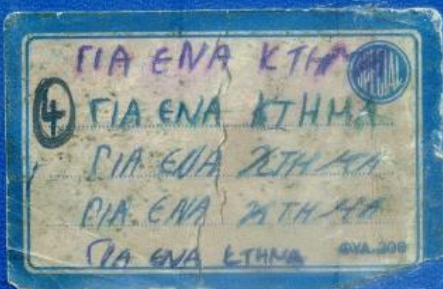 ΓΙΑ ΕΝΑ ΚΤΗΜΑ
SPECIAL
4 ΓΙΑ ΕΝΑ ΚΤΗΜΑ
ΓΙΑ ΕΝΑ ΚΤΗΜΑ
ΓΙΑ ΕΝΑ ΚΤΗΜΑ
ΓΙΑ ΕΝΑ ΚΤΗΜΑ
ΦΥΛ. 200